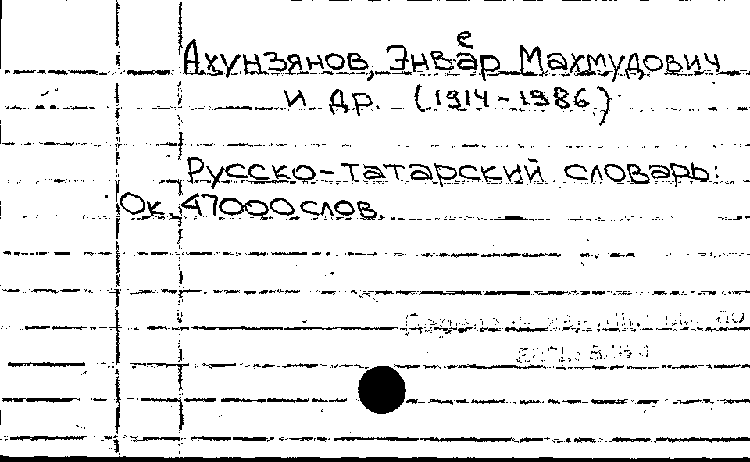 Ахунзянов, Энвāр Махмудович
и др. (1914-1986)
Русско-татарский словарь:
Ок. 47000 слов.